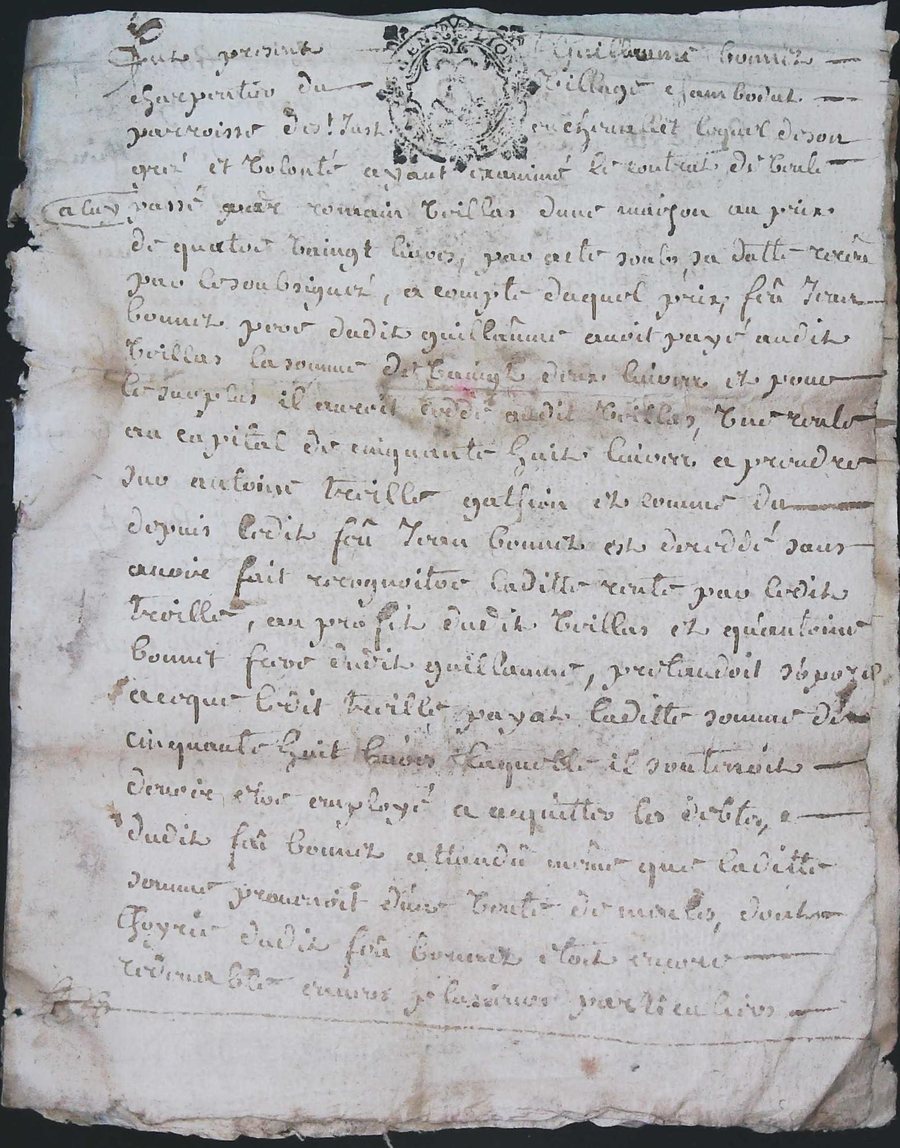 fut present — Guillaume bonnet —
charpentier du — Village Chambodut —
parroisse de st. Just en chevallet lequel deson
gré et volonté ayant examiné le contrat de vente
a luy passé par romain veillas dune maison au prix
de quatre vaingt livres, par acte soubs sa datte receu
par lesoubsigné, a compte duquel prix, feû Jean
bonnet pere dudit guillaûme avoit payé audit
veillas lasomme de vaingt deux livres et pour —
lesurplus il auroit ceddé audit veillas, vne rente
au capital de cinquante huit livres a prendre
sur antoine treille et comme du —
depuis ledit feû Jean bonnet est deceddé sans
avoir fait recognoitre laditte rente par ledit
treille, au profit dudit veillas et qu'antoine
bonnet frere dudit guillaume, pretendoit s'oposer
aceque ledit treille payat laditte somme de
cinquante huit livres laquelle il soutenoit —
devoir etre employé a acquitter les debtes —
dudit feû bonnet attendu même que laditte
somme provenoit d'une vente de meubles, dont
l'hoyrie dudit feû bonnet etoit encore —
redevable envers plusieurs particuliers —